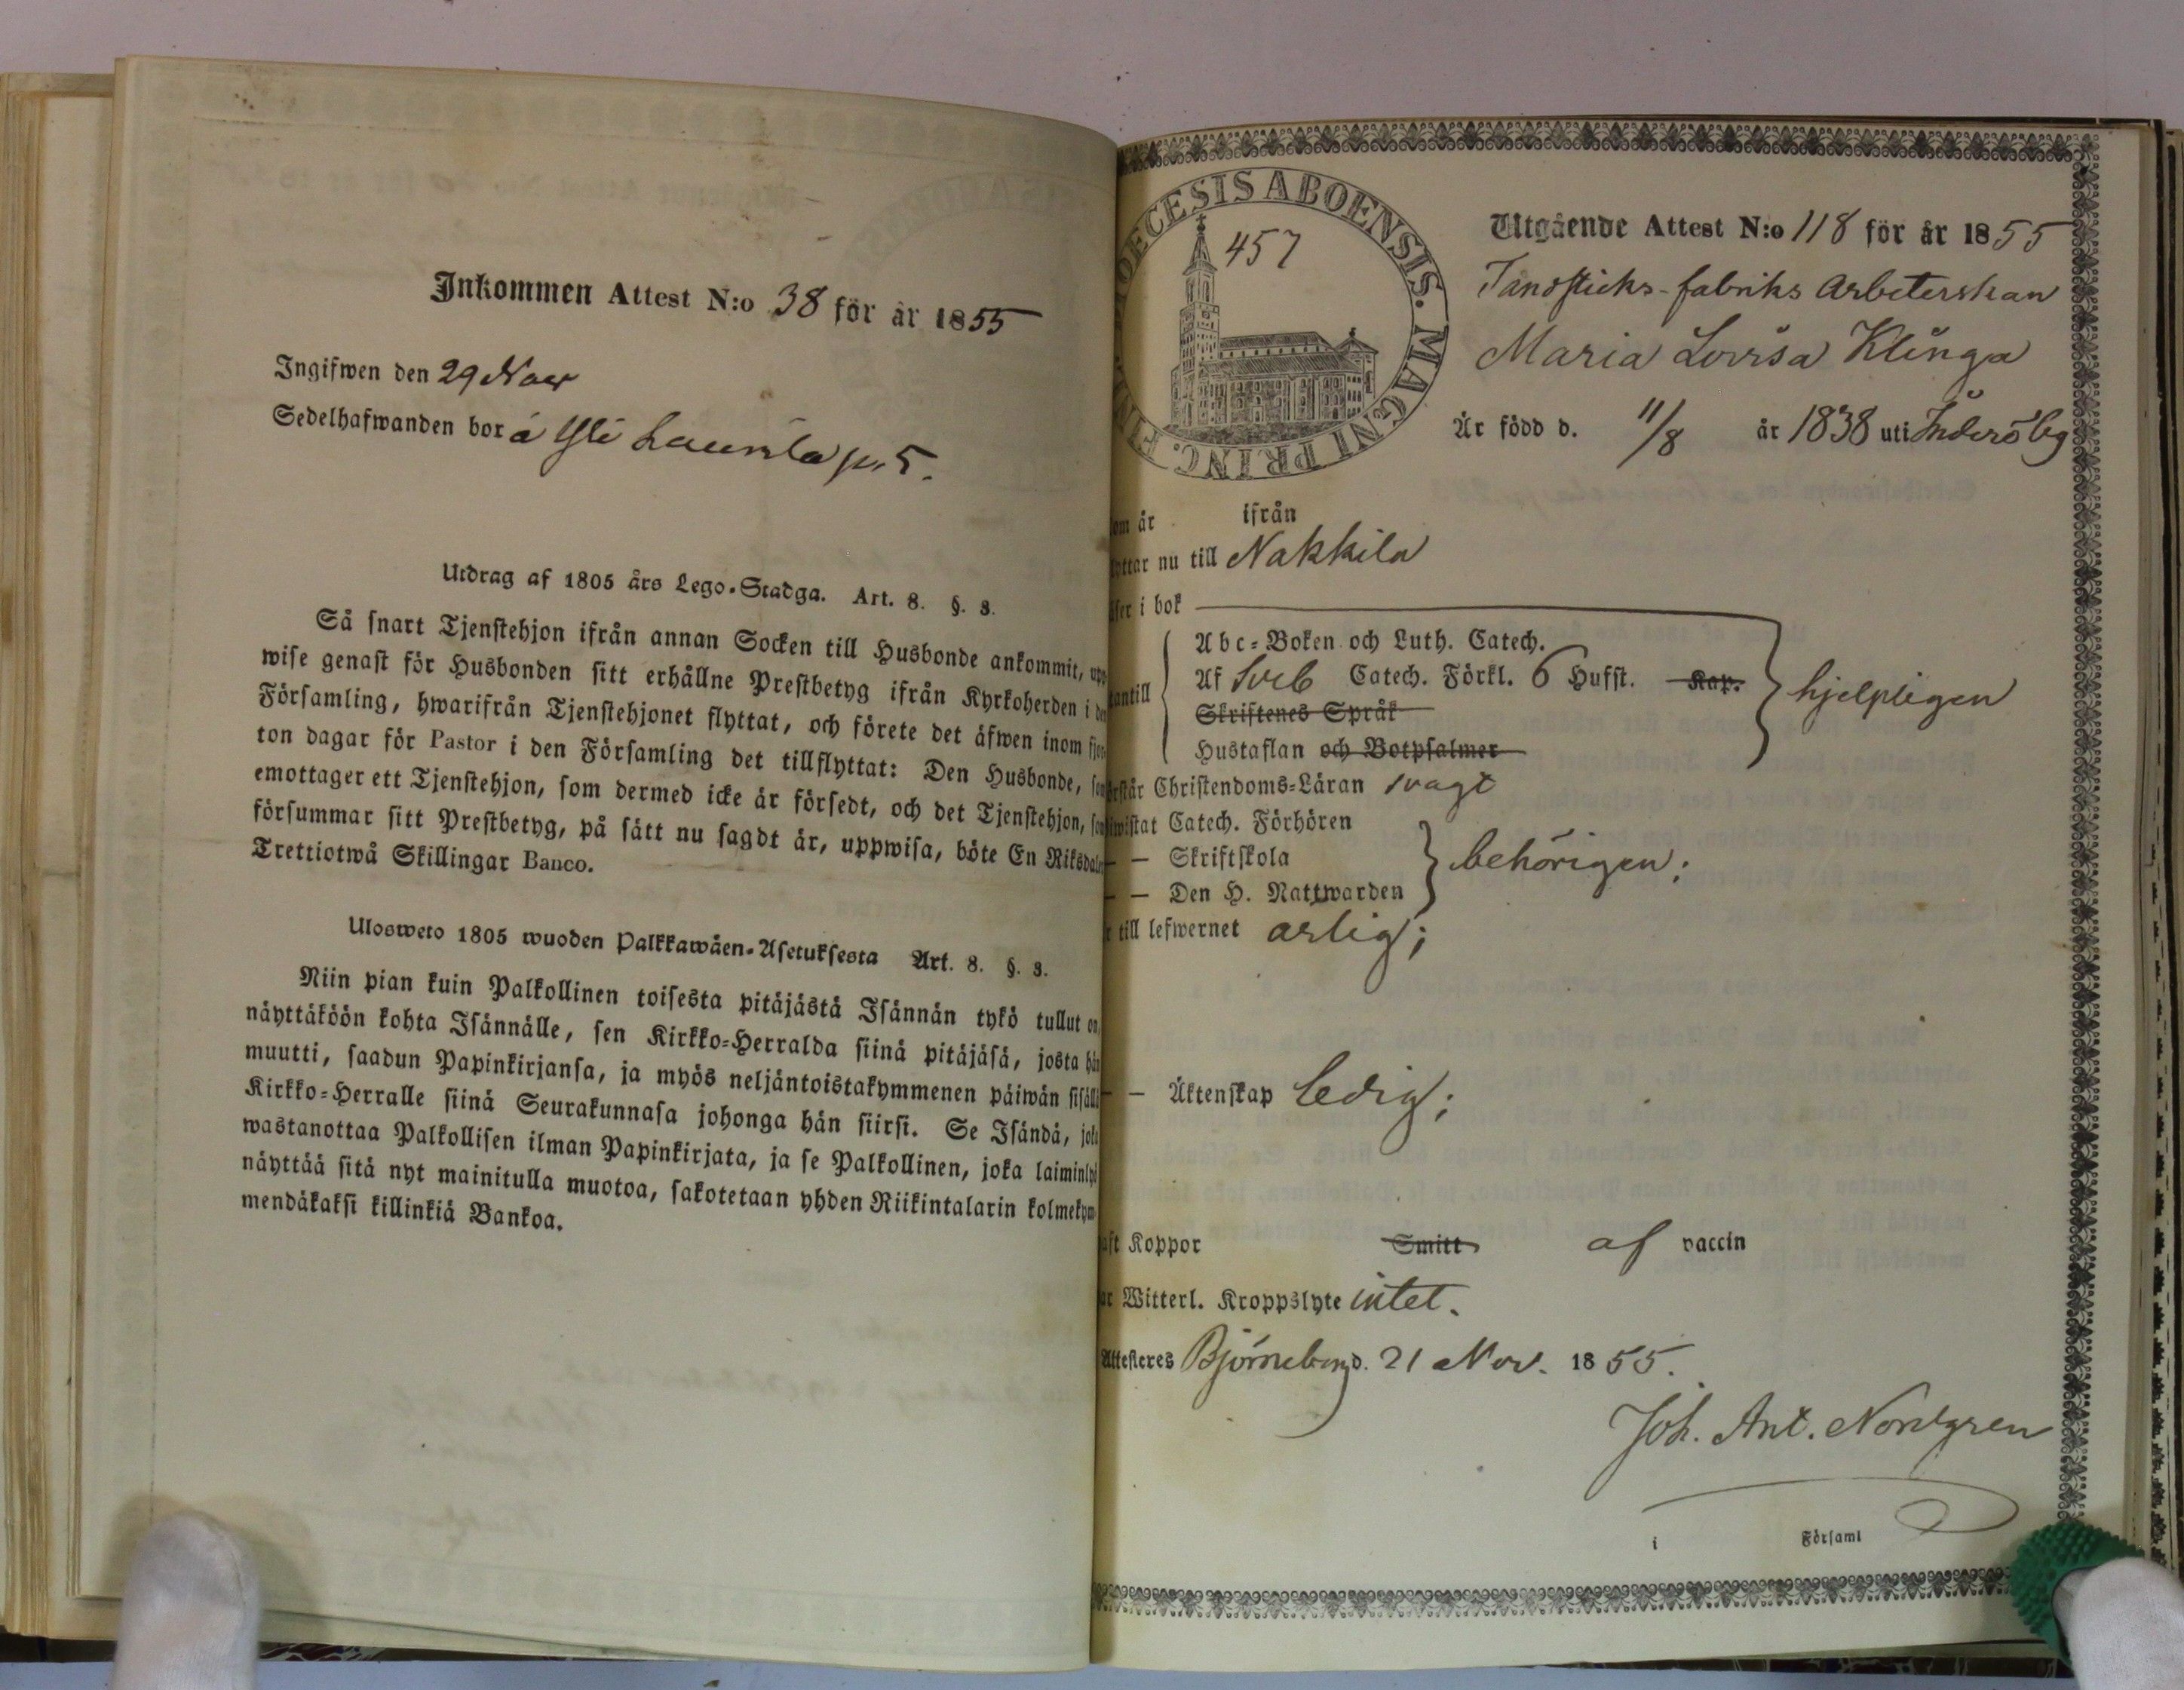 Inkommen Attest N:o 38 för år 1855
Ingifwen den 29 Nov
Sedelhafwanden bor á Yli Laurila p. 5.
Utdrag af 1805 års Lego-Stadga. Art. 8. §. 3.
Så snart Tjenstehjon ifrån annan Socken till Husbonde ankommit, upp
wise genast för Husbonden sitt erhållne Prestbetyg ifrån Kyrkoherden i den
Församling, hwarifrån Tjenstehjonet flyttat, och förete det äfwen inom fjor
ton dagar för Pastor i den Församling det tillflyttat: Den Husbonde, som
emottager ett Tjenstehjon, som dermed icke är försedt, och det Tjenstehjon, som
försummar sitt Prestbetyg, på sätt nu sagdt är, uppwisa, böte En Riksdaler
Trettiotwå Skillingar Banco.
Ulosweto 1805 wuoden Palkkawäen-Asetuksesta Art. 8. §. 3.
Niin pian kuin Palkollinen toisesta pitäjästä Isännän tykö tullut on,
näyttäköön kohta Isännälle, sen Kirkko-Herralda siinä pitäjäsä, josta hän
muutti, saadun Papinkirjansa, ja myös neljäntoistakymmenen päiwän sisällä
Kirkko-Herralle siinä Seurakunnasa johonga hän siirsi. Se Isändä, joka
wastanottaa Palkollisen ilman Papinkirjata, ja se Palkollinen, joka laiminlyö
näyttää sitä nyt mainitulla muotoa, sakotetaan yhden Riikintalarin kolmekym
mendäkaksi killinkiä Bankoa.
OECESIS ABOENSIS. MAGNI PRINC.
457
Utgående Attest N:o 118 för år 1855
Tändsticks-fabriks Arbeterskan
Maria Lovisa Klinga
Är född d. 11/8 år 1838 uti
om år ifrån
yttar nu till Nakkila
äser i bok
antill
Abc-Boken och Luth. Catech.
Af Sveb Catech. Förkl. 6 Hufst. Kap.
Skriftenes Språk
Hustaflan och Botpsalmer
hjelpligen
rstår Christendoms-Läran svagt
iwistat Catech. Förhören
– – Skriftskola
– – Den H. Nattwarden
behörigen;
r till lefwernet ärlig;
– – Äktenskap ledig;
aft Koppor Smitt af vaccin
ar Witterl. Kroppslyte intet.
Attesteres Björneborg d. 21 Nov. 1855.
Joh. Ant. Nordgren
i Församl